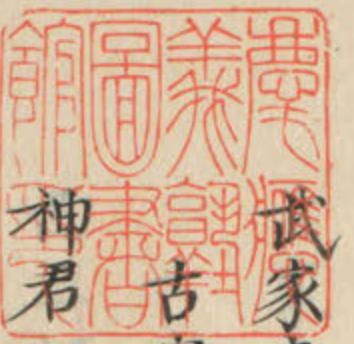 慶應
義塾
圖書
館
武家
古
神君